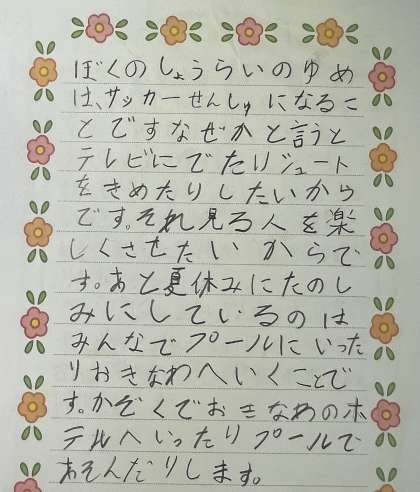 ぼくのしょうらいのゆめ
は、サッカーせんしゅになるこ
とですなぜかと言うと
テレビにでたりシュート
をきめたりしたいから
です。それ見る人を楽
しくさせたいからで
す。あと夏休みにたのし
みにしているのは
みんなでプールにいった
りおきなわへいくことで
す。かぞくでおきなわのホ
テルへいったりプールで
あそんだりします。